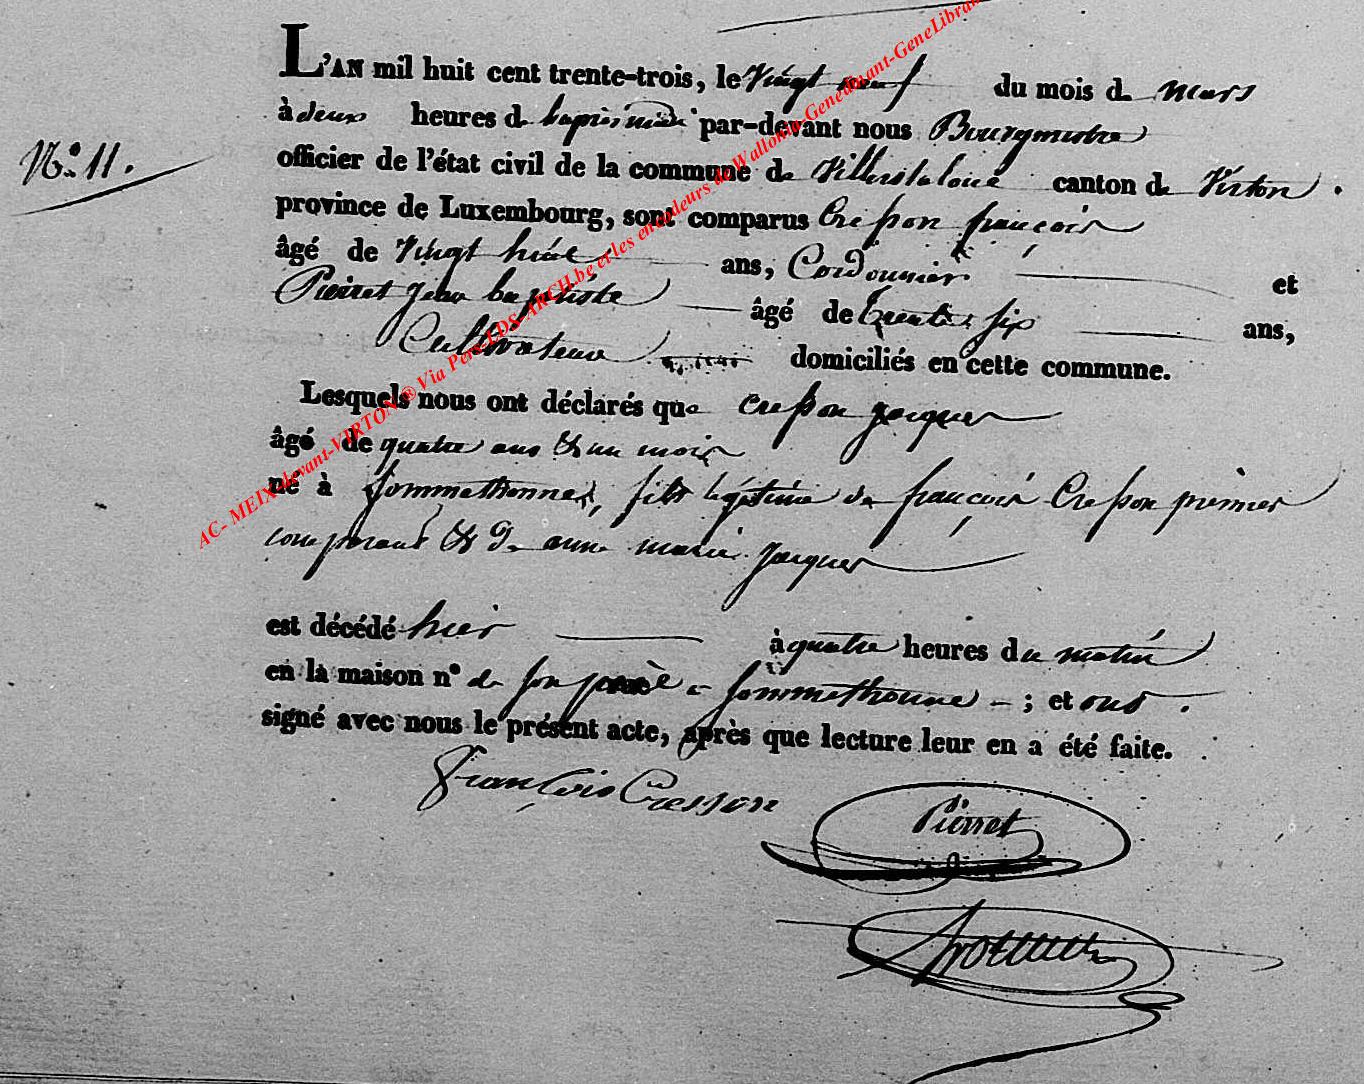 L'AN mil huit cent trente-trois, le Vingt neuf du mois de mars
à deux heures de laprès midi par-devant nous Bourgmestre
N.º 11.
officier de l'état civil de la commune de Villerslaloue canton de Virton.
province de Luxembourg, sont comparus Cresson françois
âgé de Vingt huit ans, Cordonnier et
Pierret Jean baptiste âgé de trente six ans,
Cultivateur domiciliés en cette commune.
Lesquels nous ont déclarés que Cresson jacques
âgé de quatre ans & un mois
né à Sommethonne, fils légitime de françois Cresson premier
comparant & de anne marie jacques
est décédé hier à quatre heures du matin
en la maison nº de son père a Sommethonne - ; et ont.
signé avec nous le présent acte, après que lecture leur en a été faite.
François Cresson
Pierret
AC- MEIX-devant-VIRTON ® Via Pers-LDS-ARCH.be et les encodeurs de Wallonia-Genedinant-GeneLibra